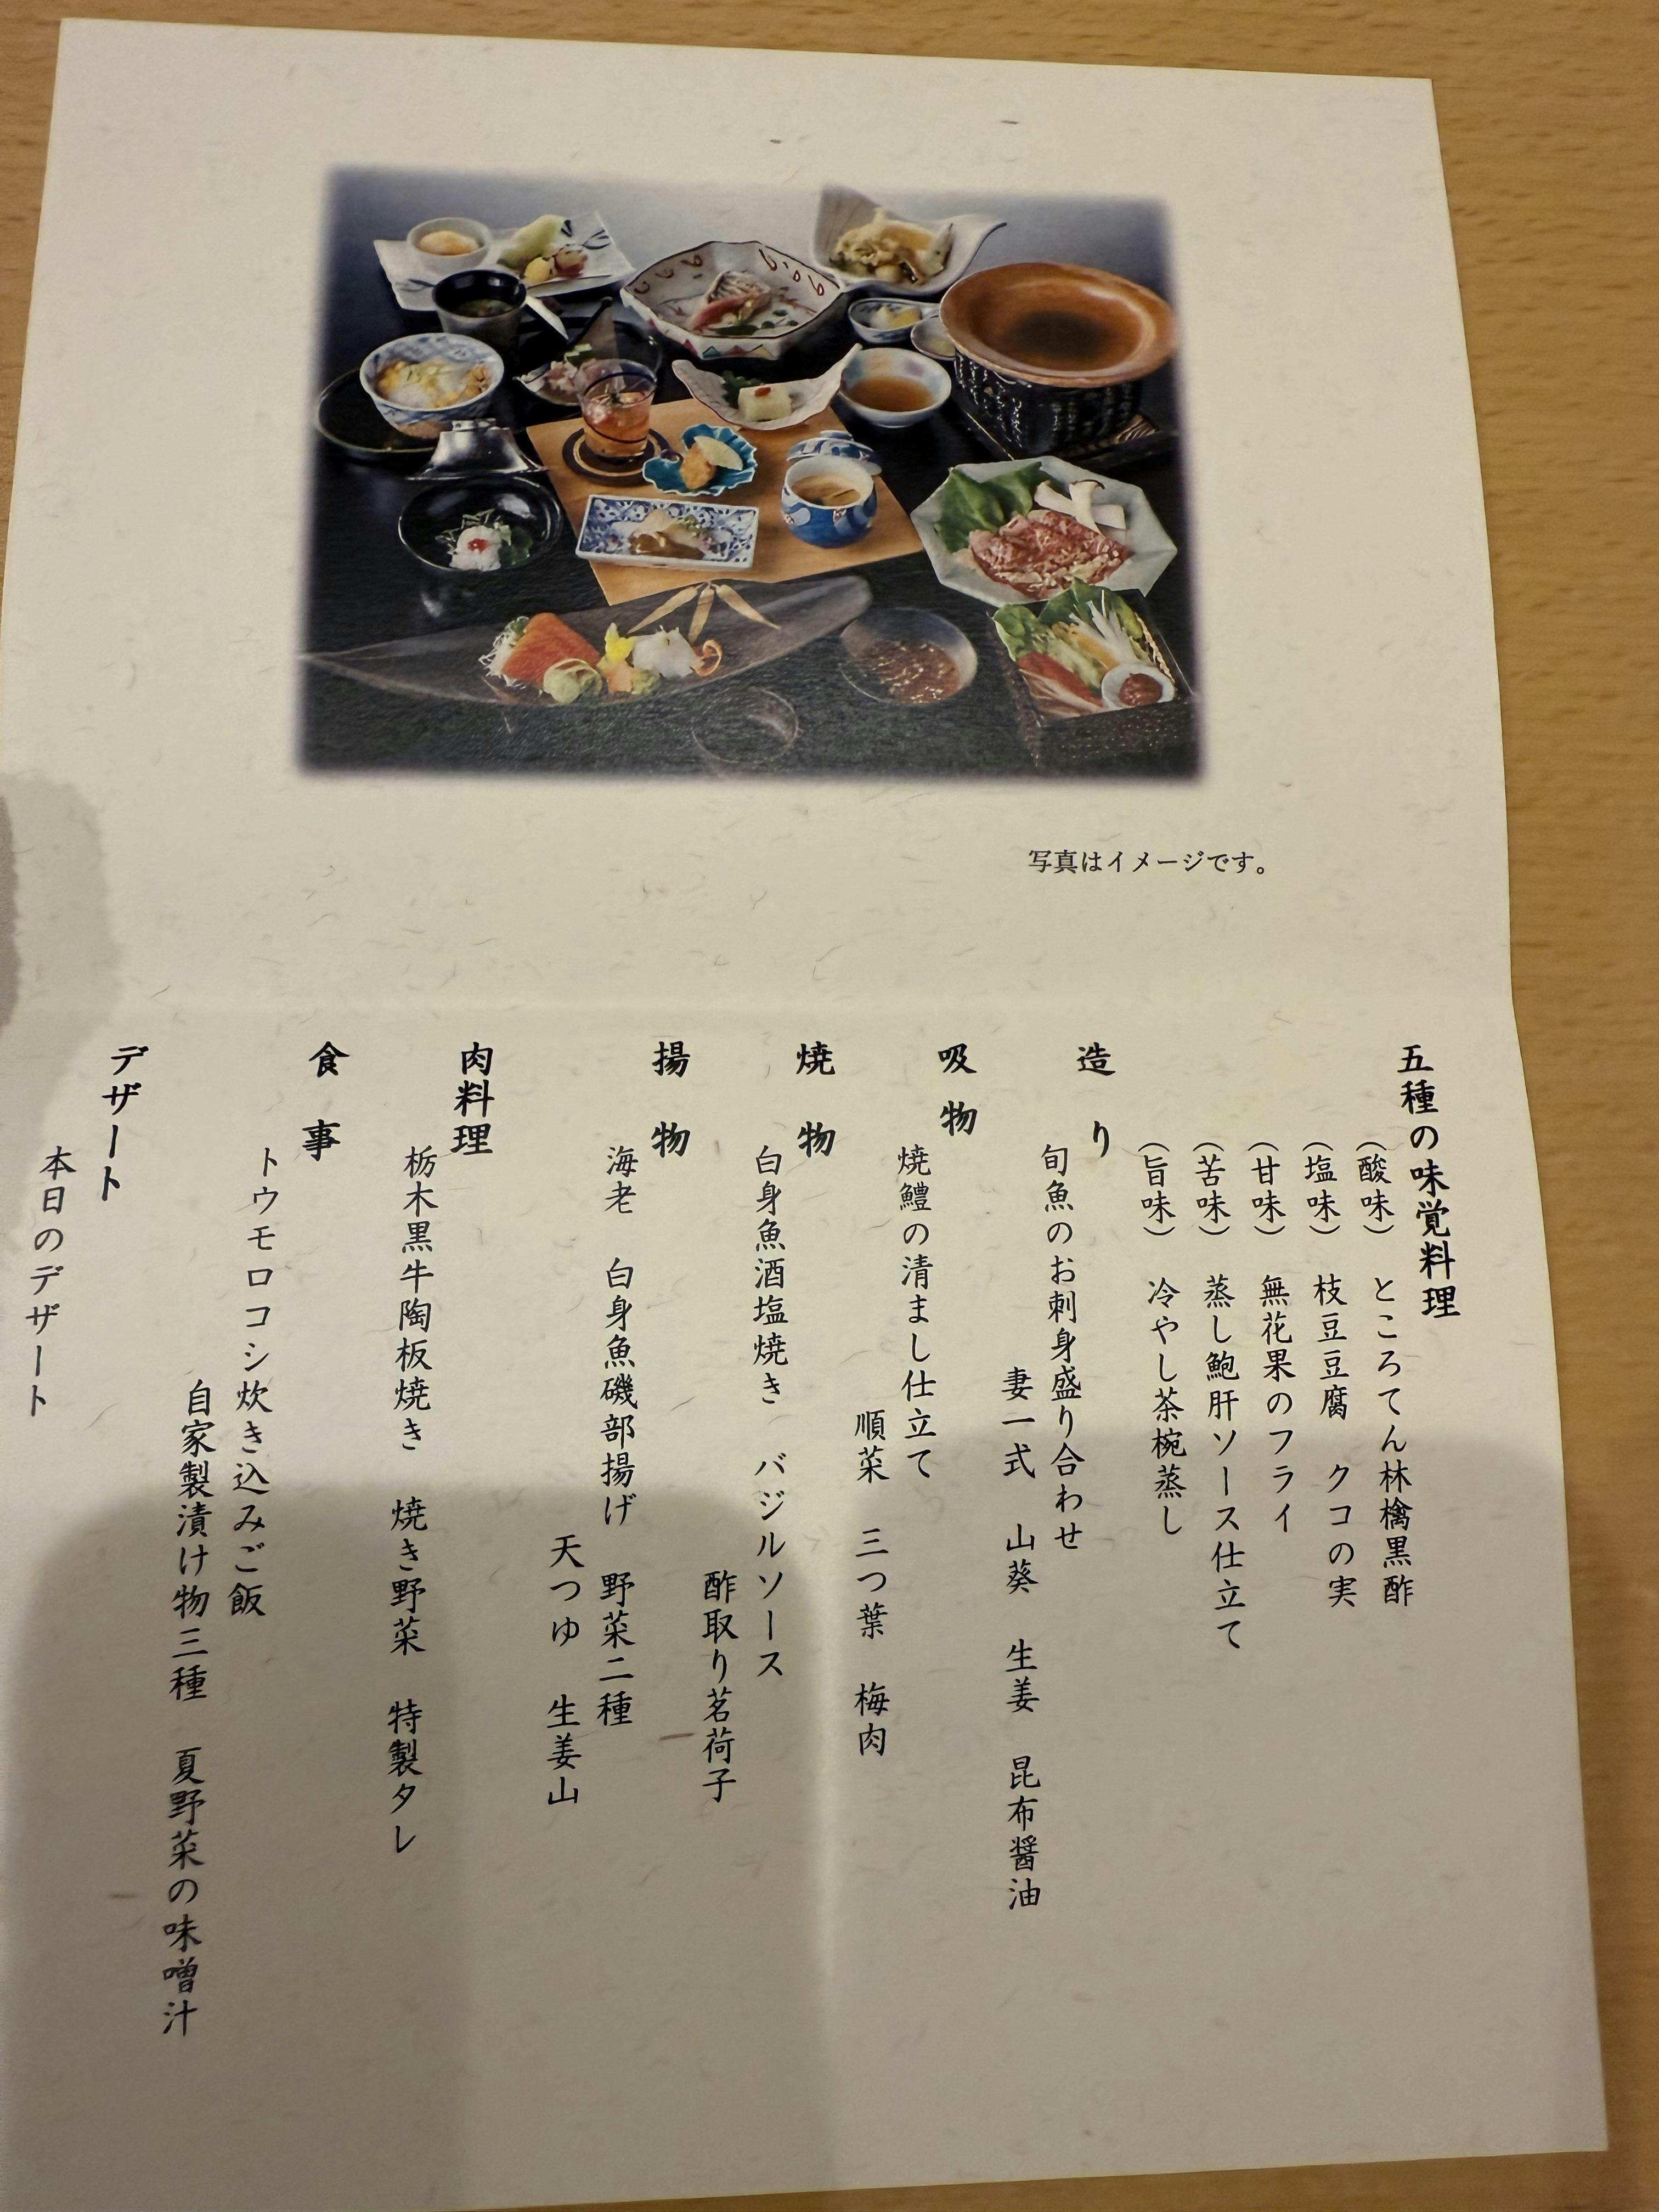 写真はイメージです。
五種の味覚料理
(酸味) ところてん林檎黒酢
(塩味) 枝豆豆腐 クコの実
(甘味) 無花果のフライ
(苦味) 蒸し鮑肝ソース仕立て
(旨味) 冷やし茶椀蒸し
造り
旬魚のお刺身盛り合わせ
妻一式 山葵 生姜 昆布醤油
吸物
焼鱧の清まし仕立て
順菜 三つ葉 梅肉
焼物
白身魚酒塩焼き バジルソース
酢取り茗荷子
揚物
海老 白身魚磯部揚げ 野菜二種
天つゆ 生姜山
肉料理
栃木黒牛陶板焼き 焼き野菜 特製タレ
食事
トウモロコシ炊き込みご飯
自家製漬け物三種 夏野菜の味噌汁
デザート
本日のデザート